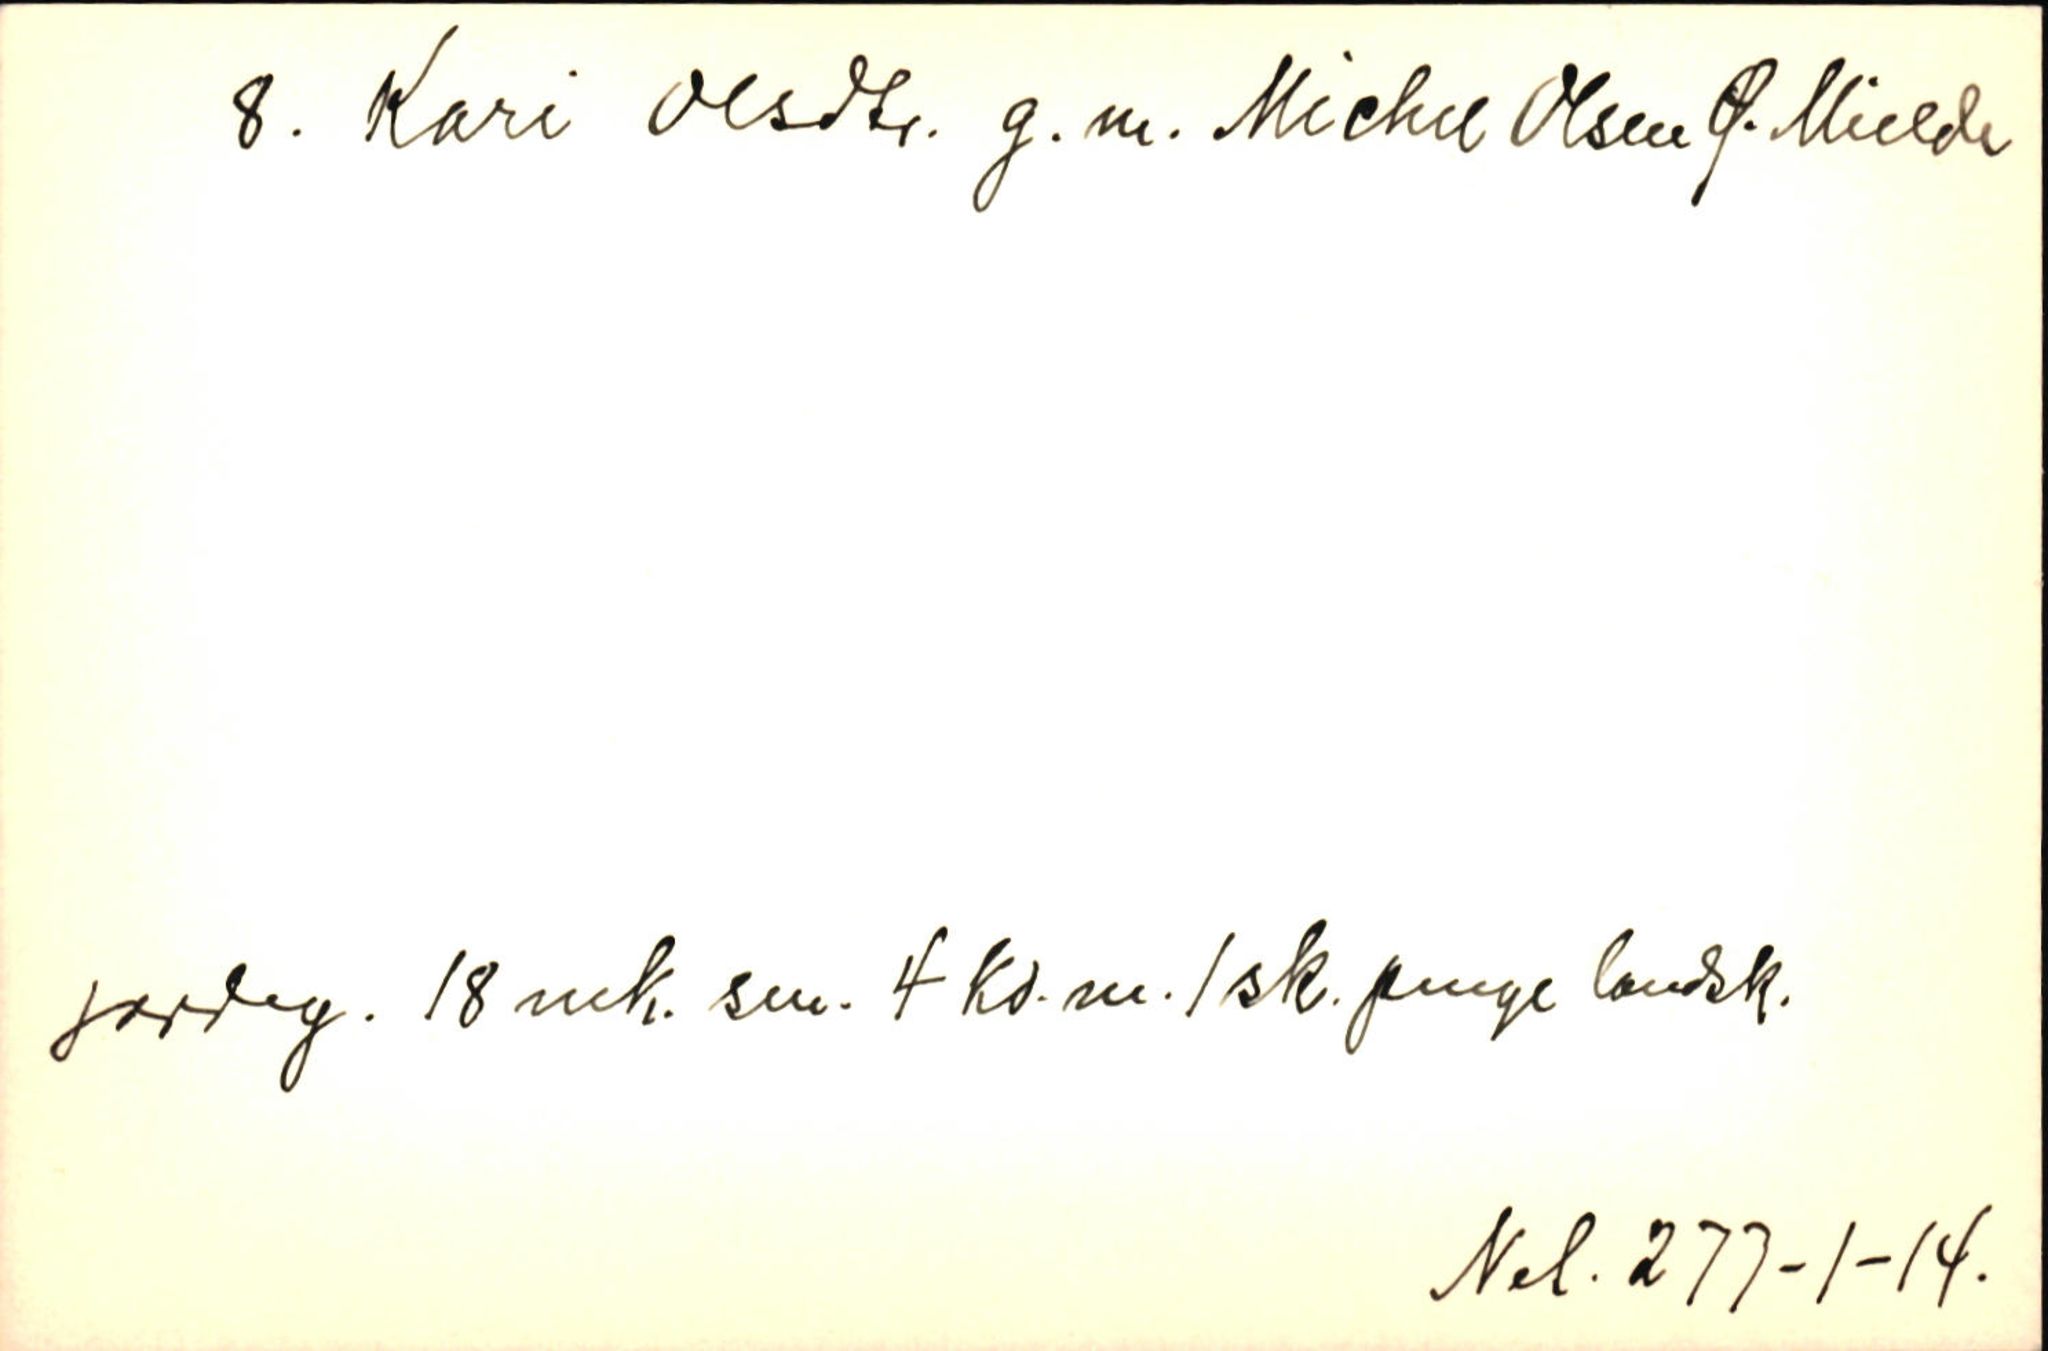 8. Kari Olsdtr. g. m. Michel Olsen Ø. Mielde
jordeg. 18 mk. sm. 4 Kd. m. 1 sk. penge landsk.
Nel. 277-1-14.